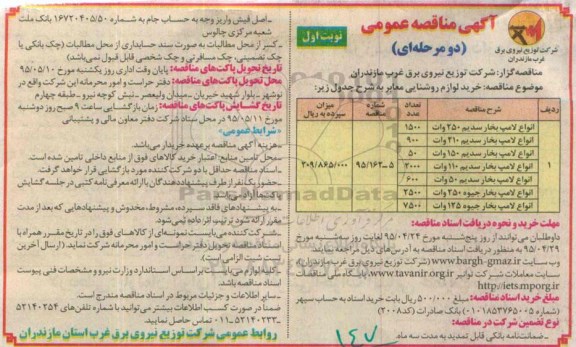 آگهی مناقصه عمومی
(دو مرحله‌ای)
نوبت اول
شرکت توزیع نیروی برق
غرب مازندران
مناقصه‌گزار: شرکت توزیع نیروی برق غرب مازندران
موضوع مناقصه: خرید لوازم روشنایی معابر به شرح جدول زیر:
ردیف شرح مناقصه تعداد عدد شماره مناقصه میزان سپرده به ریال
۱ ۵ــ۹۵/۱۶۲ ۳۰۹/۸۶۵/۰۰۰
انواع لامپ بخار سدیم ۲۵۰ وات ۱۵۰۰
انواع لامپ بخار سدیم ۲۱۰ وات ۹۰۰
انواع لامپ بخار سدیم ۱۵۰ وات ۵۰
انواع لامپ بخار سدیم ۱۱۰ وات ۲۰۰۰
انواع لامپ بخار سدیم ۵۰ وات ۶۰۰
انواع لامپ بخار جیوه ۲۵۰ وات ۲۵۰۰
انواع لامپ بخار جیوه ۱۲۵ وات ۷۵۰۰
مهلت خرید و نحوه دریافت اسناد مناقصه:
داوطلبان می‌توانند از روز پنج‌شنبه مورخ ۹۵/۰۴/۲۴ لغایت روز سه‌شنبه مورخ
۹۵/۰۴/۲۹ به منظور دریافت اسناد مناقصه به آدرس‌های ذیل مراجعه نمایند:
وب سایت www.bargh-gmaz.ir (شرکت توزیع نیروی برق غرب مازندران)،
سایت معاملات شرکت توانیر www.tavanir.org.ir، پایگاه ملی مناقصات
http://iets.mporg.ir
مبلغ خرید اسناد مناقصه: مبلغ ۵۰۰/۰۰۰ ریال بابت خرید اسناد به حساب سپهر
(شماره ۰۱۰۱۸۵۳۷۶۵۰۰۵) بانک صادرات (کد ۲۰۰۸)
نوع تضمین شرکت در مناقصه:
ـ ضمانت‌نامه بانکی قابل تمدید به مدت سه ماه.
ـ اصل فیش واریز وجه به حساب جام به شماره ۱۶۷۲۰۴۰۵/۵۰ بانک ملت
شعبه مرکزی چالوس
ـ کسر از محل مطالبات به صورت سند حسابداری از محل مطالبات (چک بانکی یا
چک تضمینی، چک مسافرتی و چک شخصی قابل قبول نمی‌باشد)
تاریخ تحویل پاکت‌های مناقصه: پایان وقت اداری روز یکشنبه مورخ ۹۵/۰۵/۱۰
محل تحویل پاکت‌های مناقصه: دفتر حراست و امور محرمانه این شرکت واقع در
نوشهر ـ بلوار شهید خیریان ـ میدان ولیعصر ـ نبش کوچه نیرو ـ طبقه چهارم
تاریخ گشایش پاکت‌های مناقصه: زمان بازگشایی ساعت ۹ صبح روز دوشنبه
مورخ ۹۵/۰۵/۱۱ در محل ستاد شرکت دفتر معاون مالی و پشتیبانی
«شرایط عمومی»
ـ هزینه آگهی مناقصه برعهده خریدار می‌باشد.
ـ محل تامین منابع: اعتبار خرید کالاهای فوق از منابع داخلی تامین شده است.
ـ اسناد مناقصه حداقل با دو شرکت کننده مورد بازگشایی قرار خواهد گرفت.
ـ حضور یک نفر از طرف پیشنهاددهندگان با ارائه معرفی‌نامه کتبی در جلسه گشایش
ـ به پیشنهادهای فاقد سپرده، مشروط، مخدوش و پیشنهادهایی که بعد از مدت
مقرر ارائه شود ترتیب اثر داده نمی‌شود.
ـ شرکت‌کننده می‌بایست نمونه‌ای از کالاهای فوق را در تاریخ مقرر همراه با
اسناد مناقصه تحویل دفتر حراست و امور محرمانه شرکت نماید. (ارسال آخرین
لیست شیت الزامی است).
ـ کلیه لوازم می‌بایست براساس استاندارد وزارت نیرو و مشخصات فنی پیوست
اسناد مناقصه باشد.
ـ سایر اطلاعات و جزئیات مربوط در اسناد مناقصه مندرج است.
ضمنا در صورت کسب اطلاعات بیشتر می‌توانید با شماره تلفن‌های ۵۲۱۴۰۲۵۴
ـ ۵۲۱۴۰۲۳۳ـ۰۱۱ تماس حاصل نمایید.
روابط عمومی شرکت توزیع نیروی برق غرب استان مازندران
۱۴۷